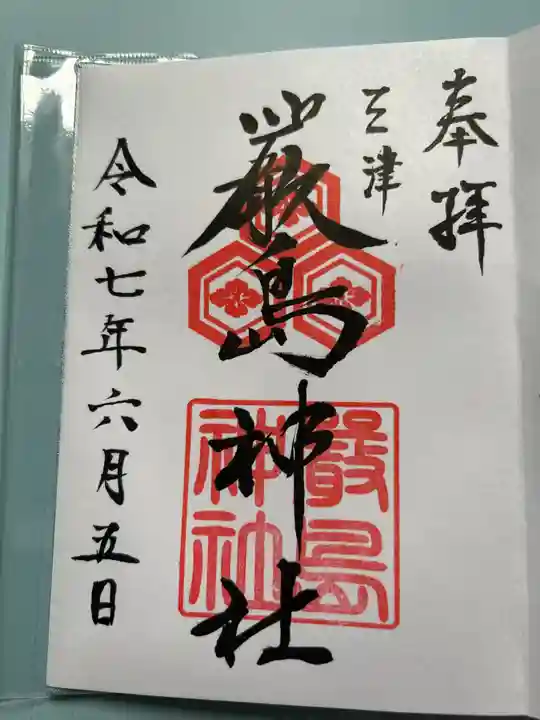 奉拝
三津
厳島神社
厳島
神社
令和七年六月五日